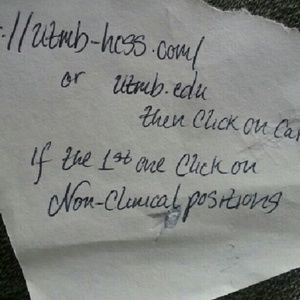 ://utmb-hcss.com/
or utmb.edu
then Click on Ca
If the 1st one Click on
Non-Clinical positions